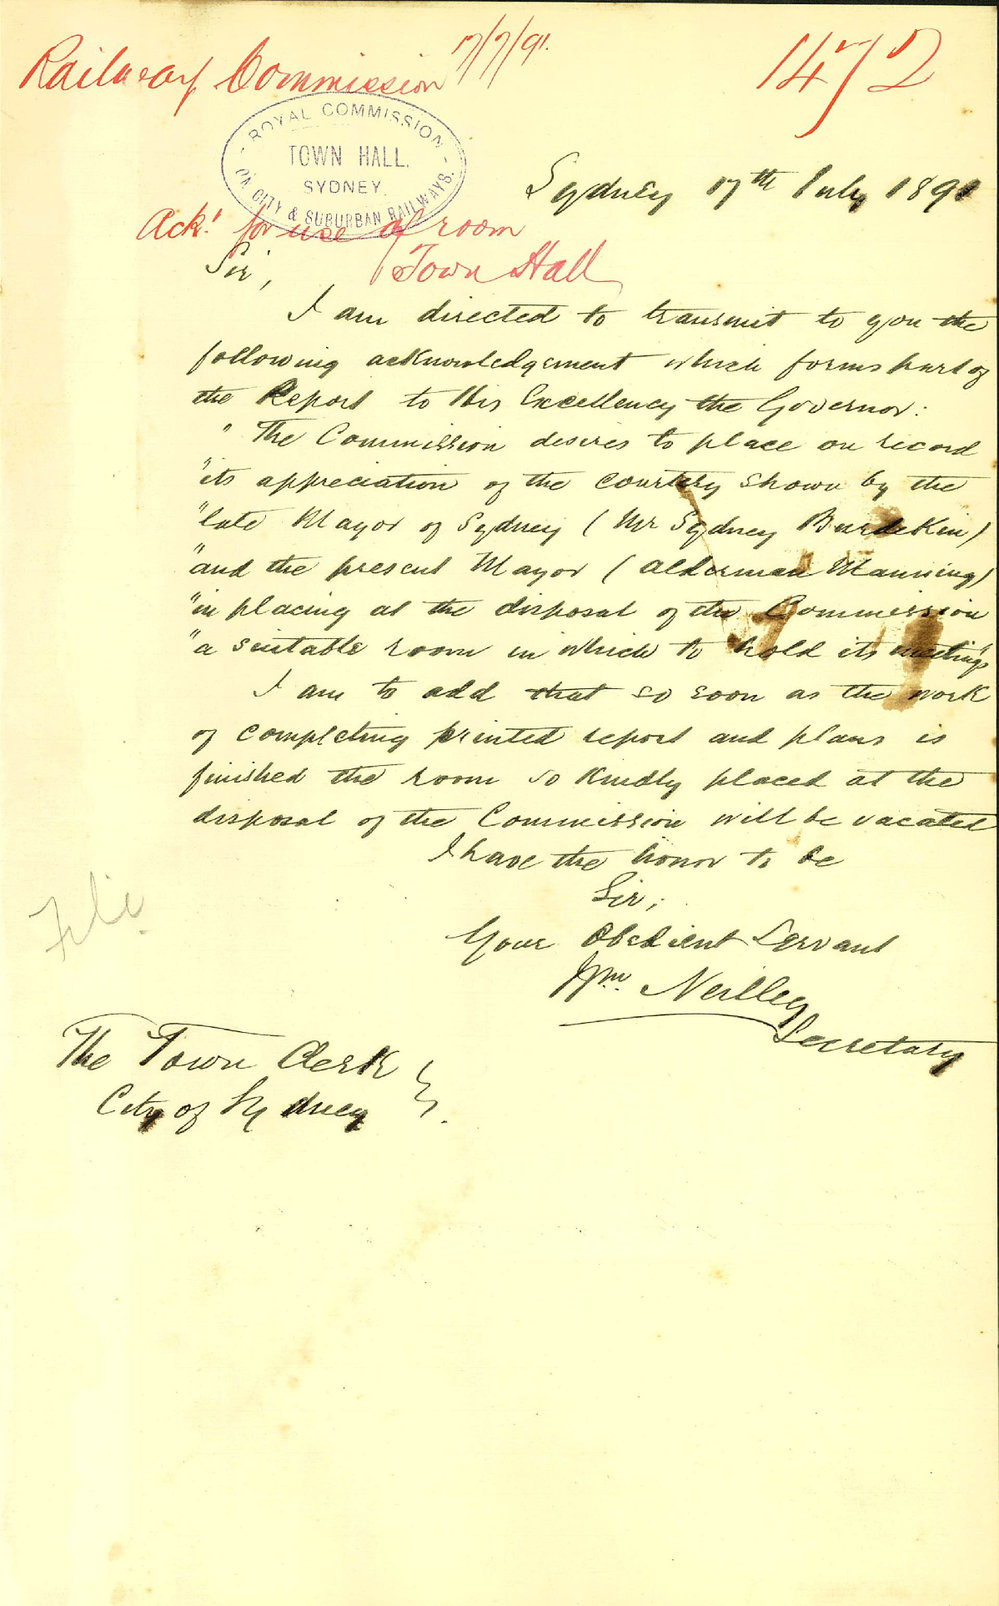 Railway Commission 17/7/91.
1472
ROYAL COMMISSION
TOWN HALL.
SYDNEY.
ON CITY & SUBURBAN RAILWAYS.
Sydney 17th July 1891
Ackt for use of room
Town Hall
Sir,
I am directed to transmit to you the
following acknowledgement which forms part of
the Report to His Excellency the Governor:
" The Commission desires to place on record
"its appreciation of the courtesy shown by the
"late Mayor of Sydney (Mr Sydney Burdekin)
"and the present Mayor (Alderman Manning)
"in placing at the disposal of the Commission
"a suitable room in which to hold its meetings"
I am to add that so soon as the work
of completing printed report and plans is
finished the room so kindly placed at the
disposal of the Commission will be vacated
I have the honor to be
Sir,
Your Obedient Servant
Wm. Neilley
Secretary
File
The Town Clerk
City of Sydney